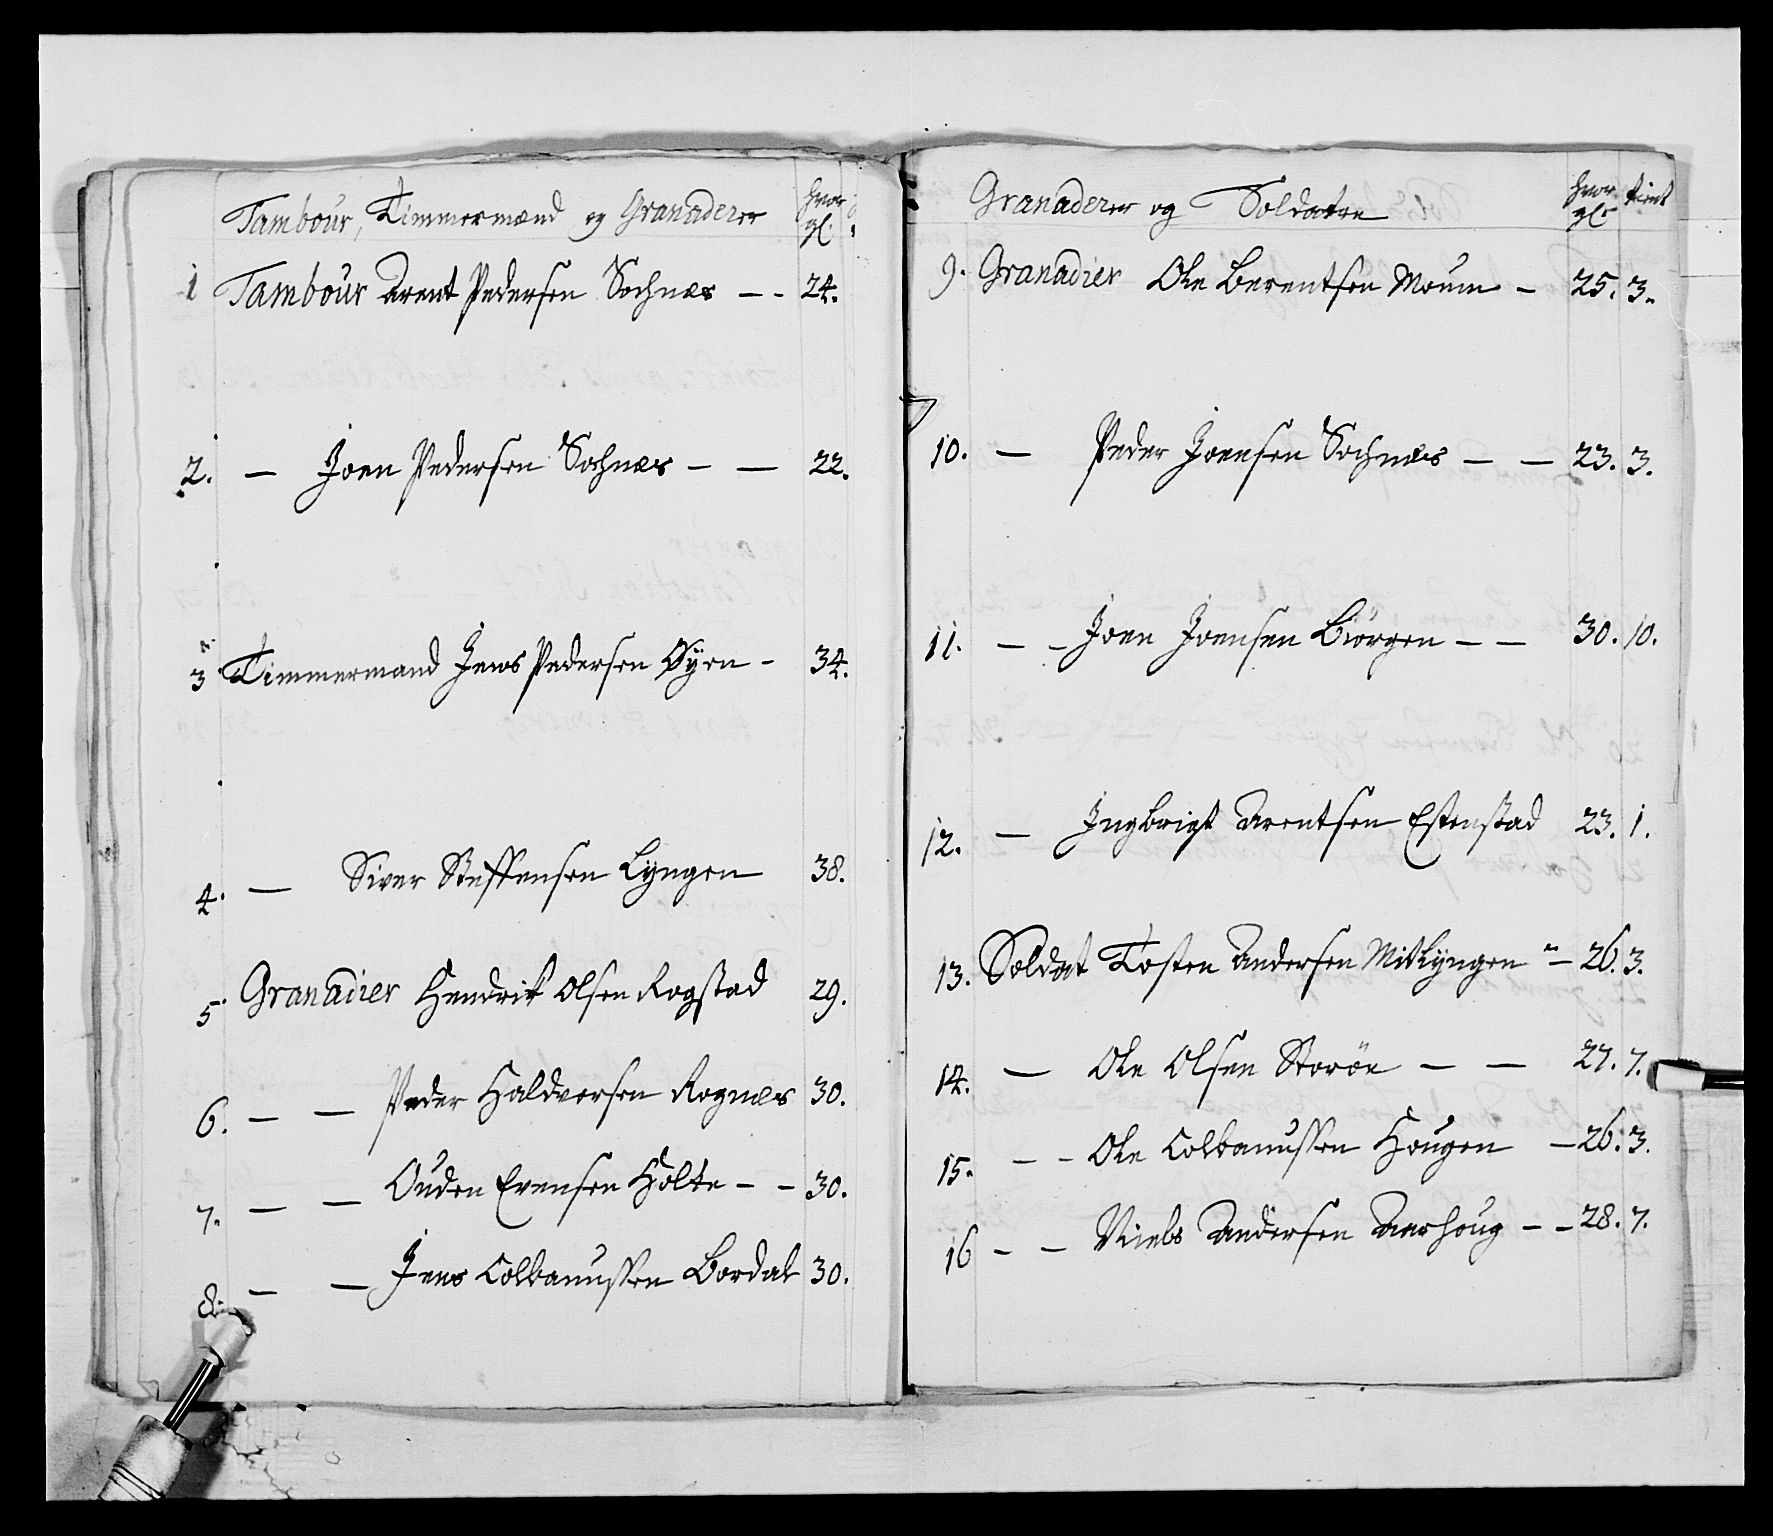 Tambour, Timmermænd og Granaderer hvor gl.
1 Tambour Arent Pedersen Sochnæs — - 24.
2. — Joen Pedersen Sochnæs — — 22.
3 Timmermand Jens Pedersen Øyen - 34.
4. — Siver Steffensen Lyngen 38.
5. Granadier Hendrik Olsen Rogstad 29.
6. — — Peder Haldorsen Rognæs 30.
7. — — Ouden Evensen Holte - - 30.
8. — — Jens Colbanussen Bordal 30.
Granaderer og Soldater hvor gl. tient
9. Granadier Ole Berentsen Moum - 25. 3.
10. — Peder Joensen Sochnæs — — 23. 3.
11. — - Joen Joensen Biörgen — — 30. 10.
12. — Ingbrigt Arentsen Estenstad 23. 1.
13. Soldat Tosten Andersen Mitlyngen — 26. 3.
14. — Ole Olsen Storöe — — 27. 7.
15. — - Ole Colbanussen Hougen — 26. 3.
16 — — Niels Andersen Aarhoug — — 28. 7.